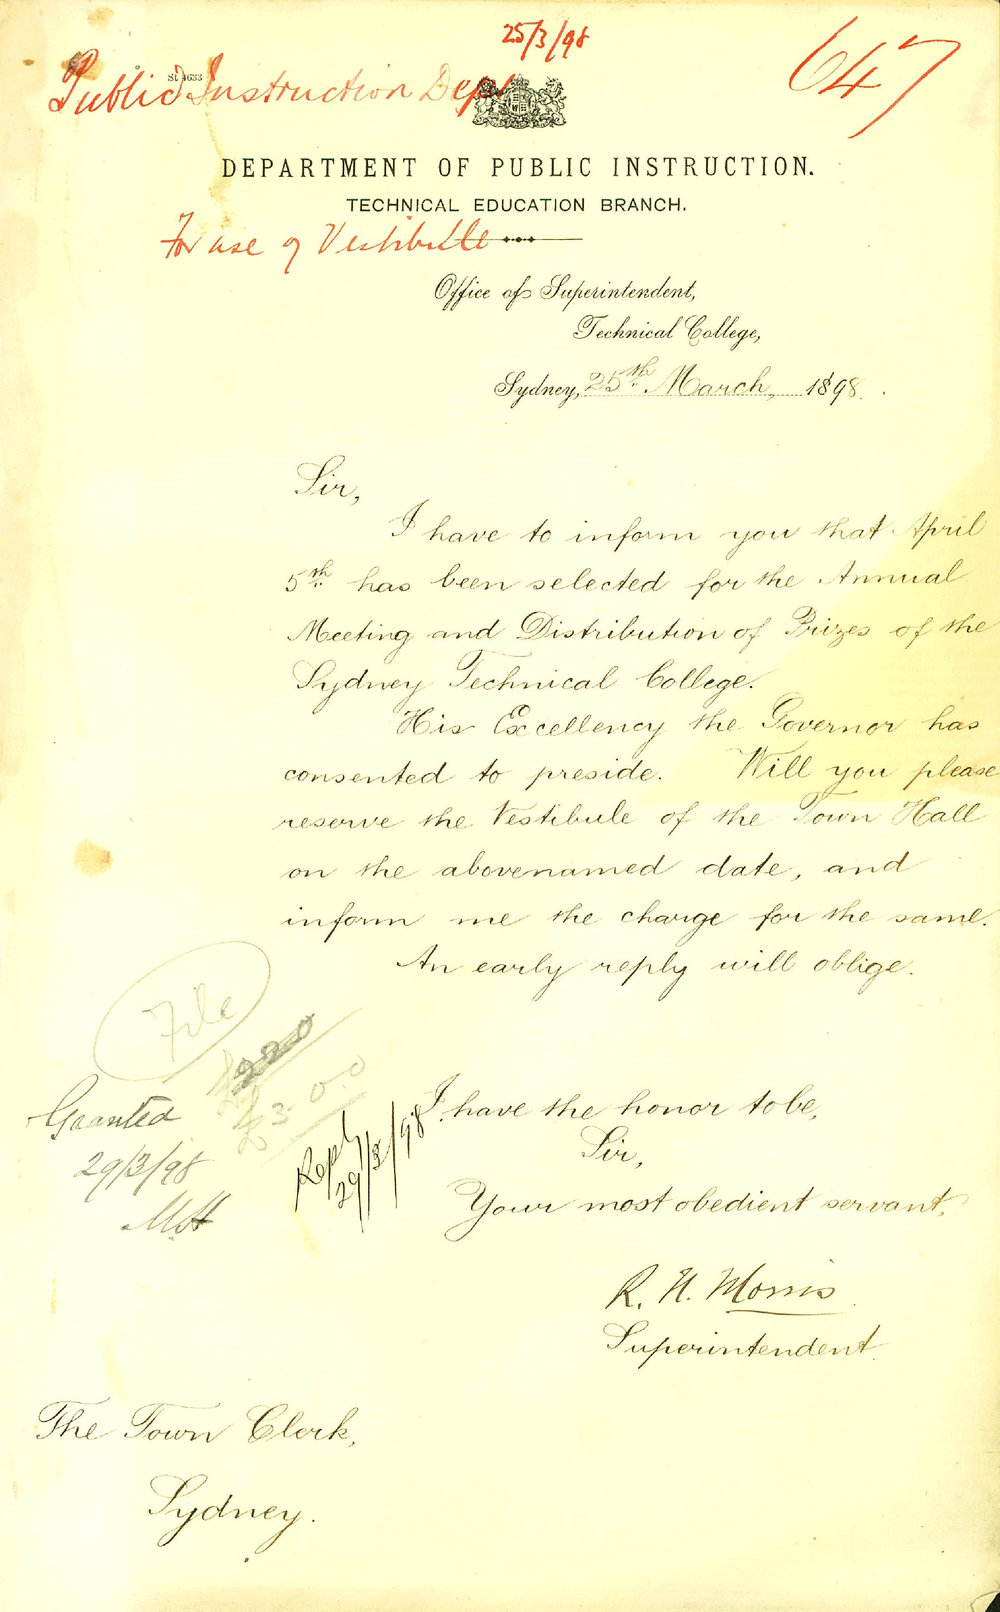 25/3/98
647
Public Instruction Dept
St 4633
DEPARTMENT OF PUBLIC INSTRUCTION.
TECHNICAL EDUCATION BRANCH.
For use of Vestibule
Office of Superintendent,
Technical College,
Sydney, 25th March, 1898.
Sir,
I have to inform you that April
5th has been selected for the Annual
Meeting and Distribution of Prizes of the
Sydney Technical College.
His Excellency the Governor has
consented to preside. Will you please
reserve the Vestibule of the Town Hall
on the abovenamed date, and
inform me the charge for the same.
An early reply will oblige.
File
£3.0.0
Granted
29/3/98
Reply
29/3/98
I have the honor to be,
Sir,
Your most obedient servant,
R. N. Morris
Superintendent.
The Town Clerk,
Sydney.